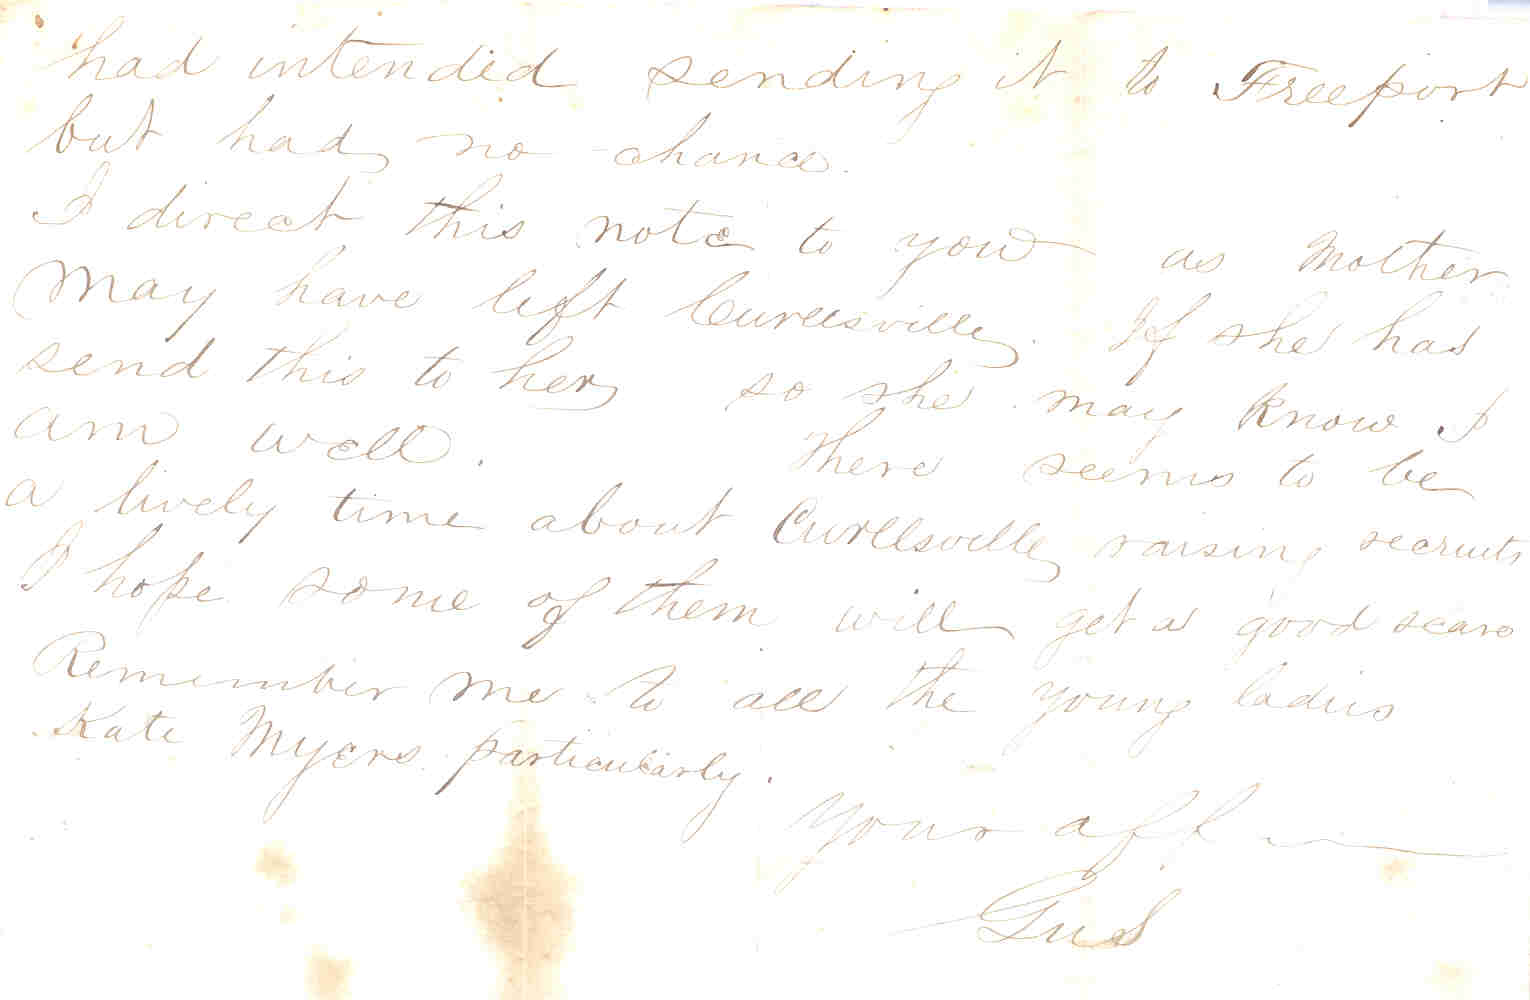 had intended sending it to Freeport
but had no chance.
I direct this note to you as Mother
may have left Curllsville. If she has
send this to her so she may know I
am well. There seems to be
a lively time about Curllsville raising recruits
I hope some of them will get a good scare
Remember me to all the young ladies
Kate Myers particularly.
Your aff
Gus